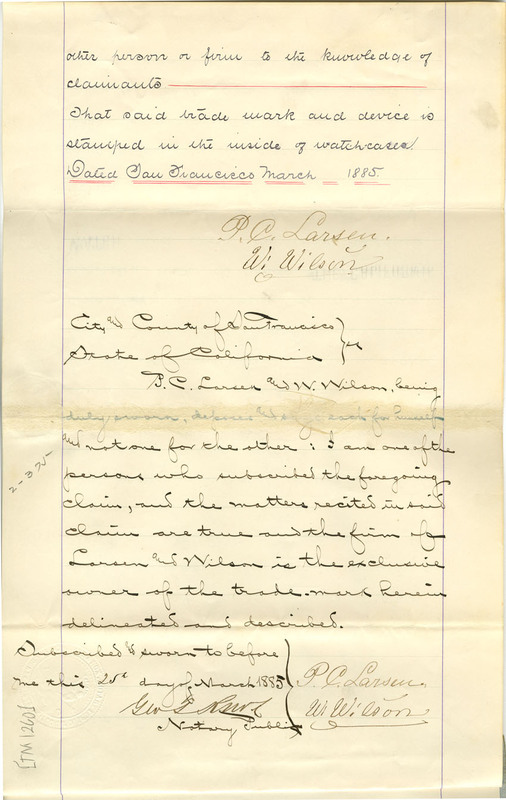 other person or firm to the knowledge of
claimants
That said trade mark and device is
stamped in the inside of watchcases
Dated San Francisco March 1885.
P. C. Larsen.
W. Wilson
City & County of San Francisco
State of California } ss
P. C. Larsen & W. Wilson, being
duly sworn, deposes & says each for himself
& not one for the other: I am one of the
persons who subscribed the foregoing
claim, and the matters recited in said
claim are true and the firm of
Larsen & Wilson is the exclusive
owner of the trade-mark herein
delineated and described.
Subscribed & sworn to before
me this 25th day of March 1885
Geo T
Notary Public
P. C. Larsen.
W. Wilson
[TM 1260]